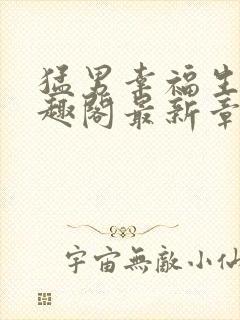 猛男幸福生
趣阁最新章
宇宙無敵小仙